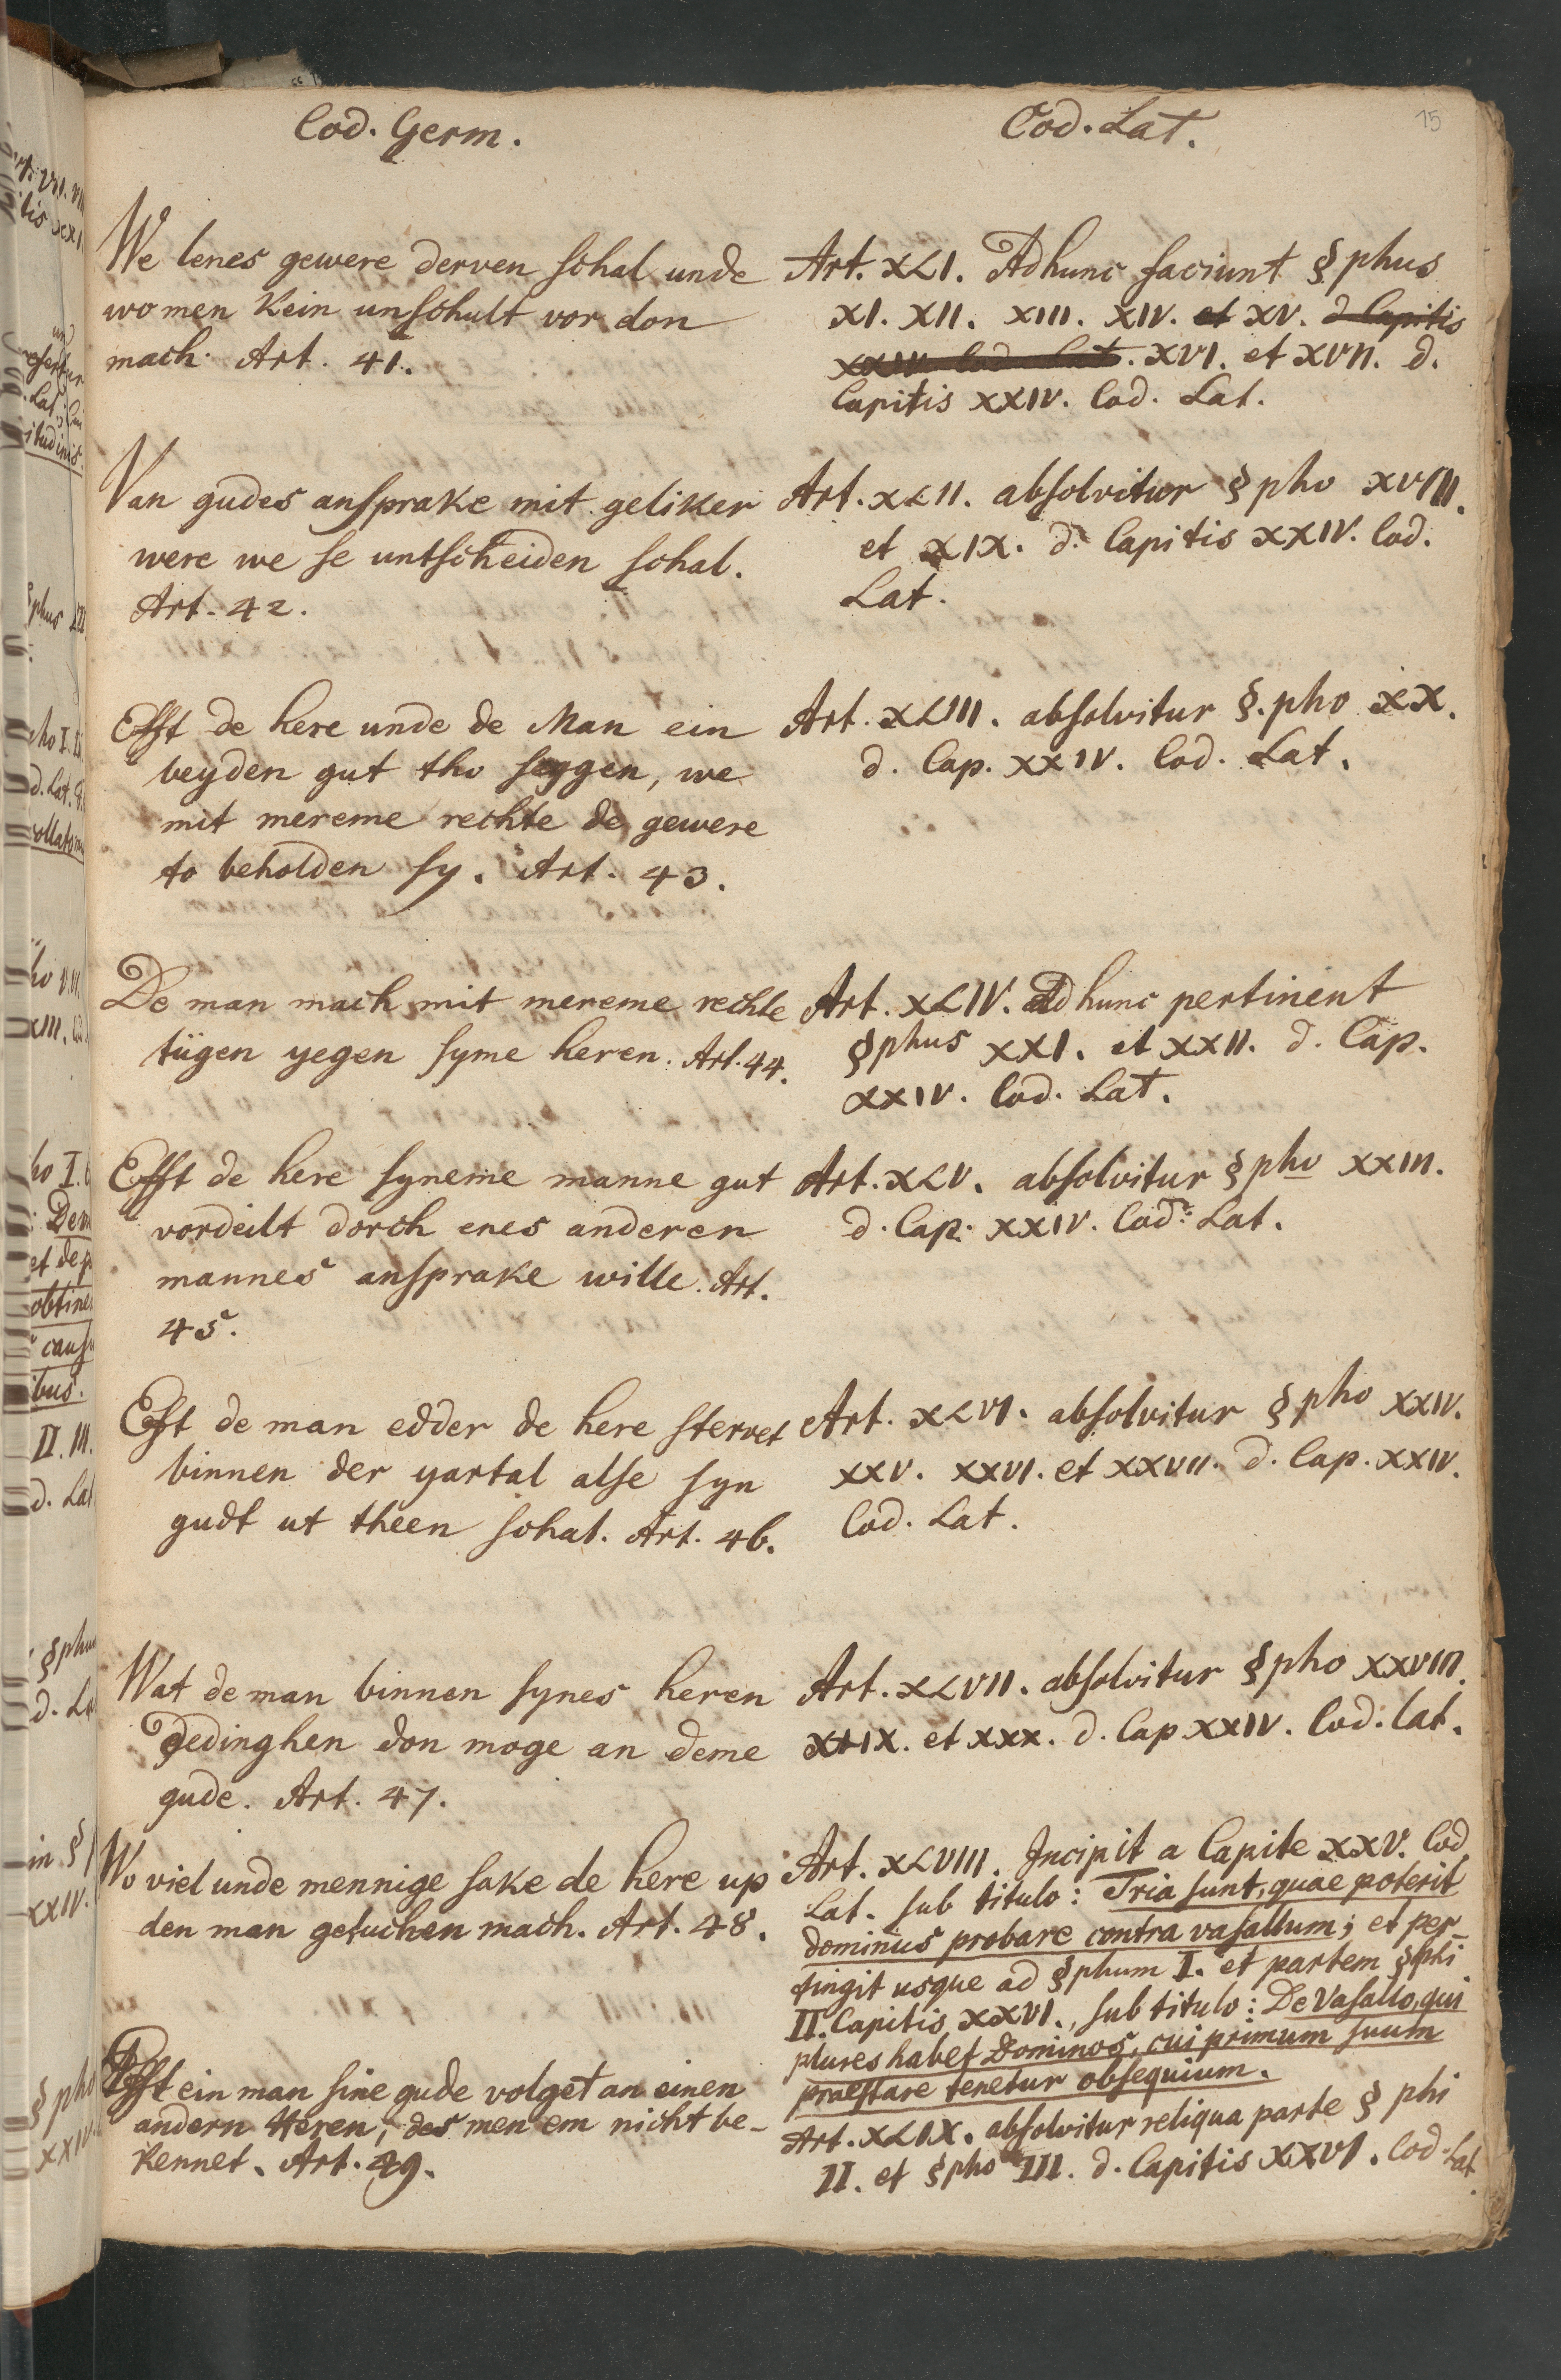 Cod. Germ.
We lenes gewere derven schal unde
wo men kein unschult vor don
mach. Art. 41.
Van gudes ansprake mit geliker
were we se untscheiden schal.
Art. 42.
Efft de here unde de Man ein
beyden gut tho seggen, we
mit mereme rechte de gewere
to beholden sy. Art. 43.
De man mach mit mereme rechte
tügen yegen syme heren. Art. 44.
Efft de here syneme manne gut
vordeilt dorch enes anderen
mannes ansprake wille. Art.
45.
Efft de man edder de here stervet
binnen der yartal alse syn
gudt ut theen schal. Art. 46.
Wat de man binnen synes heren
Dedinghen don moge an deme
gude. Art. 47.
Wo viel unde mennige sake de here up
den man getuchen mach. Art. 48.
Efft ein man sine gude volget an einen
andern Heren, des men em nicht be-
kennet. Art. 49.
Cod. Lat.
15
Art. XLI. Ad hunc faciunt §phus
XI. XII. XIII. XIV. et XV. d. Capitis
XXIV. Cod. Lat. XVI. et XVII. d.
Capitis XXIV. Cod. Lat.
Art. XLII. absolvitur §pho XVIII.
et XIX. d. Capitis XXIV. Cod.
Lat.
Art. XLIII. absolvitur §.pho XX.
d. Cap. XXIV. Cod. Lat.
Art. XLIV. Ad hunc pertinent
§phus XXI. et XXII. d. Cap.
XXIV. Cod. Lat.
Art. XLV. absolvitur §pho XXIII.
d. Cap. XXIV. Cod. Lat.
Art. XLVI. absolvitur §pho XXIV.
XXV. XXVI. et XXVII. d. Cap. XXIV.
Cod. Lat.
Art. XLVII. absolvitur §pho XXVIII.
XXIX. et XXX. d. Cap. XXIV. Cod. Lat.
Art. XLVIII. Incipit a Capite XXV. Cod
Lat. sub titulo: Tria sunt, quae poterit
dominus probare contra vasallum; et per-
tingit usque ad §phum I. et partem §phi
II. Capitis XXVI., sub titulo: De Vasallo, qui
plures habet Dominos, cui primum suum
praestare tenetur obsequium.
Art. XLIX. absolvitur reliqua parte § phi
II. et §pho III. d. Capitis XXVI. Cod. Lat.